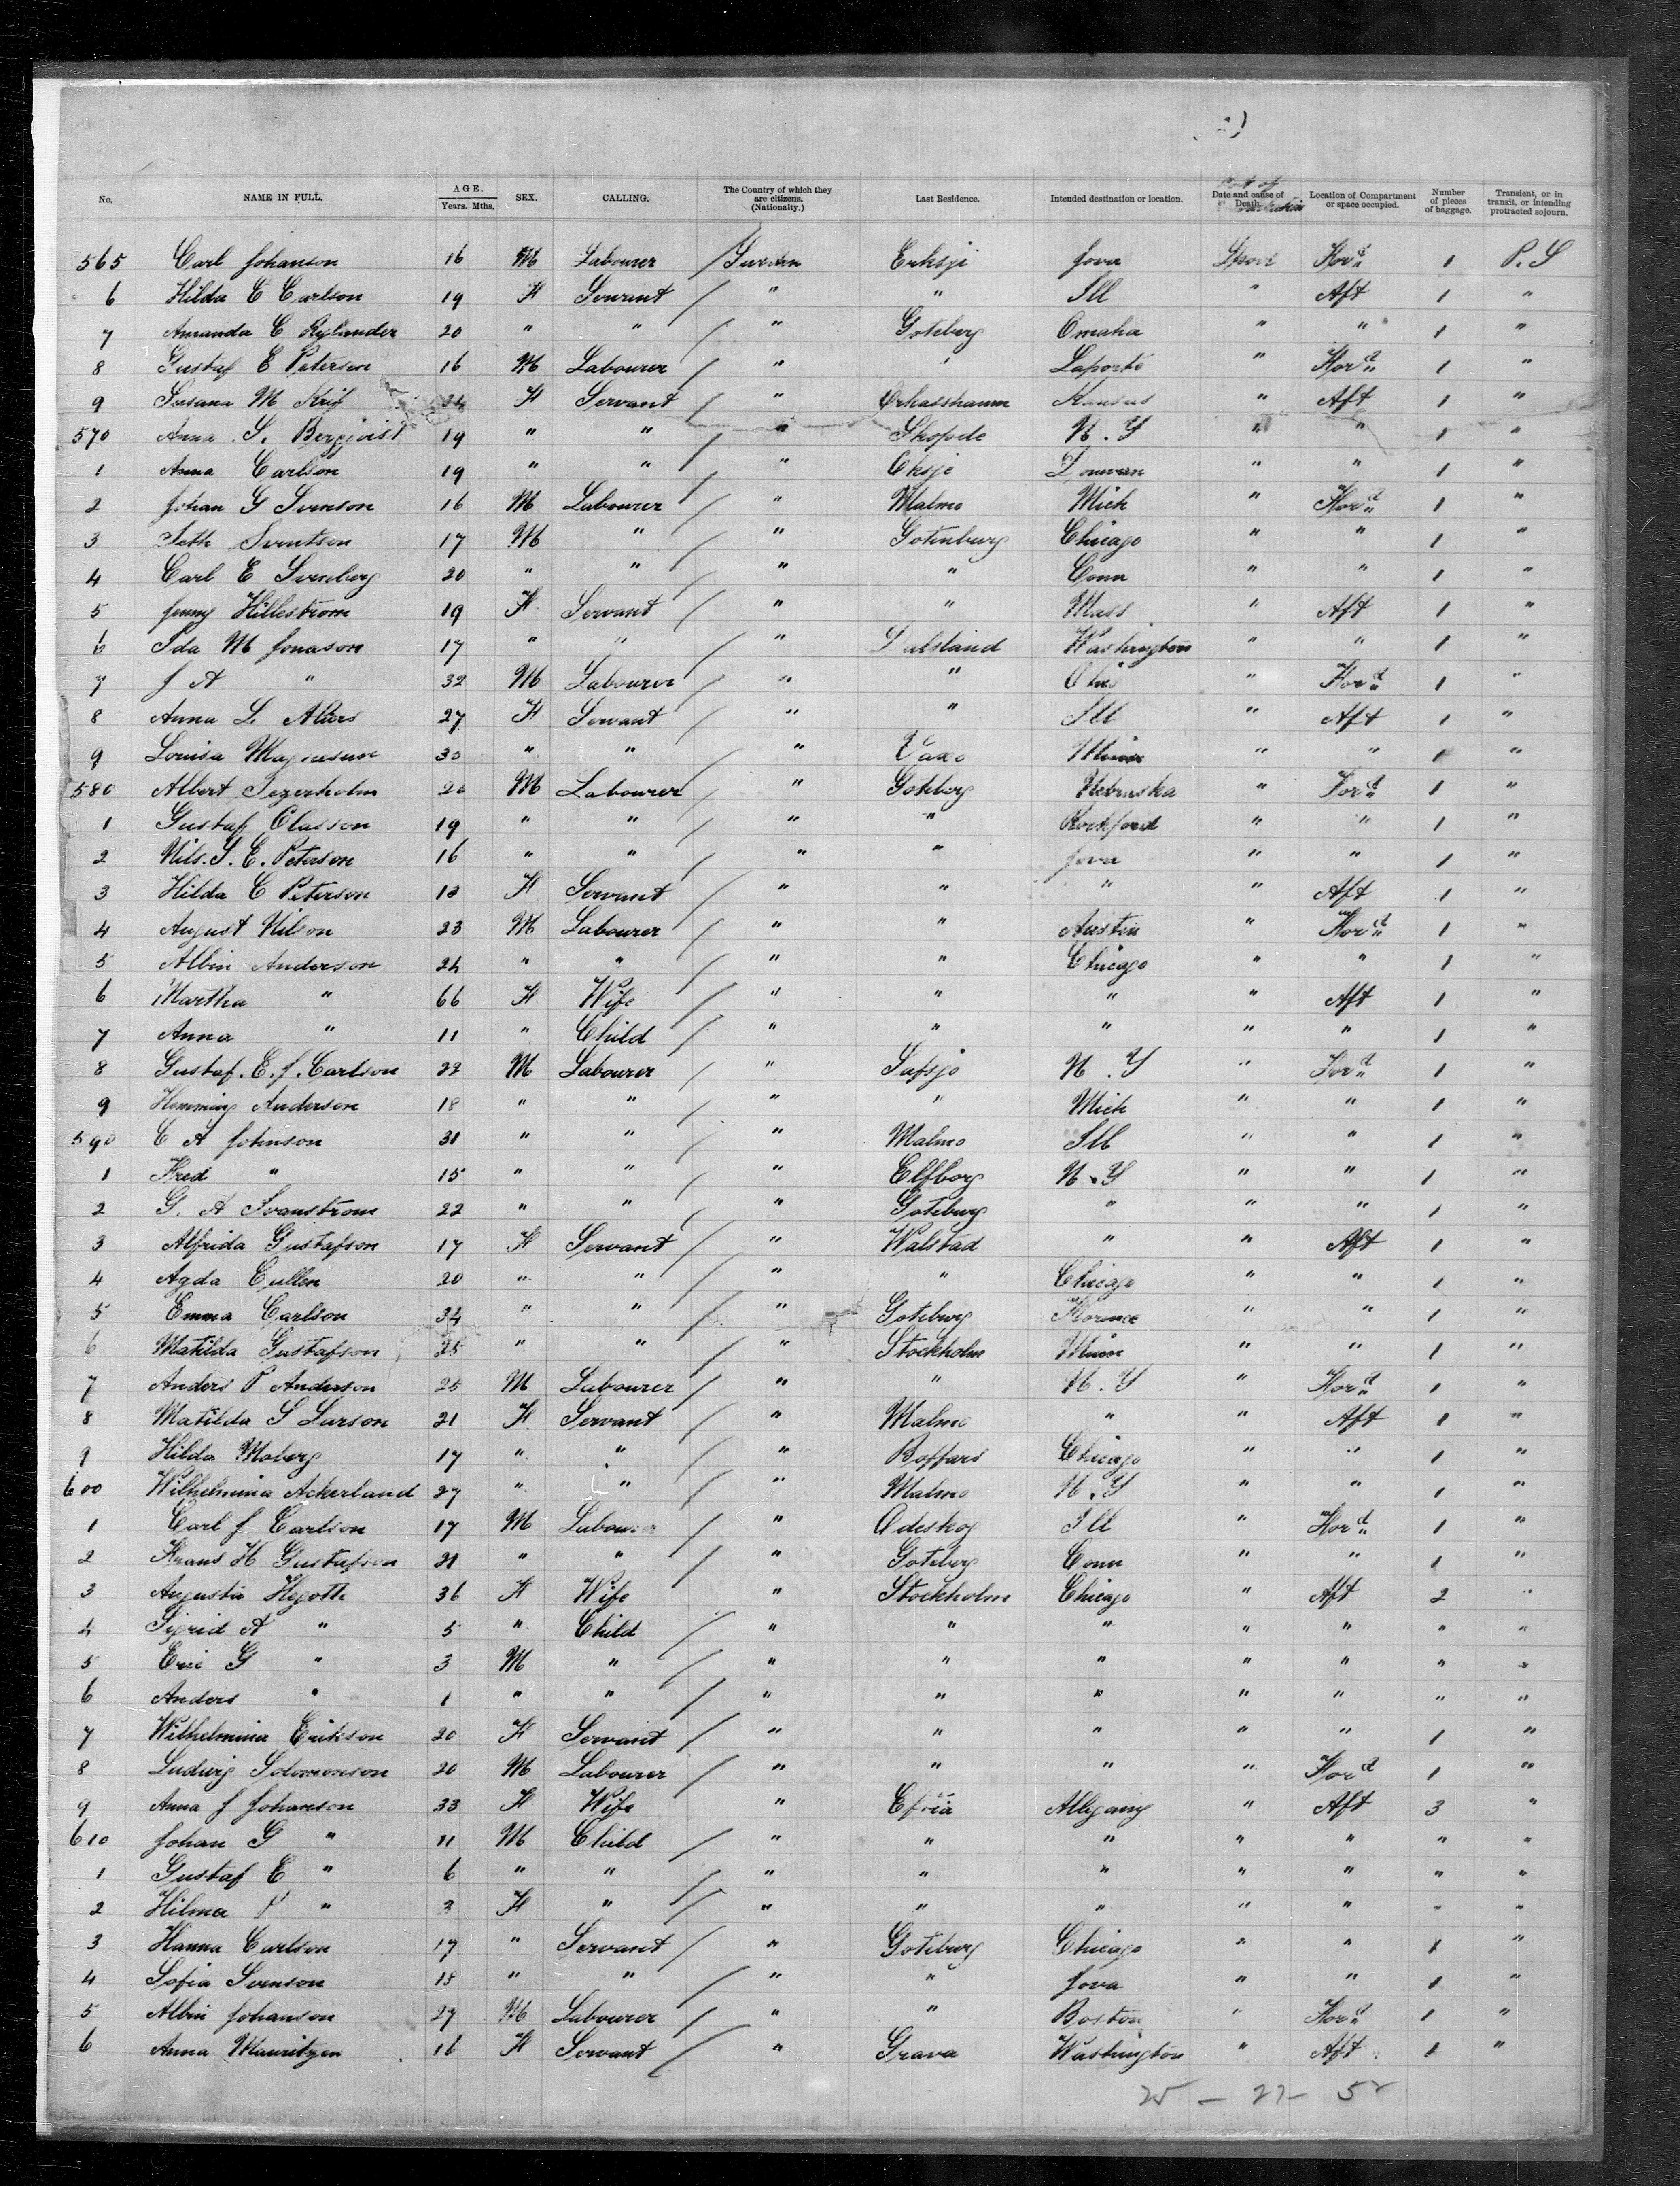 No. NAME IN FULL. AGE. Years. Mths. SEX. CALLING. The Country of which they are citizens. (Nationalty.) Last Residence. Intended destination or location. Date and cause of Death. Location of Compartment or space occupied. Number of pieces of baggage. Transient, or in transit, or intending protracted sojourn.
565 Carl Johanson 16 M Labourer Sweden Eksjo Iova Lpool For'd 1 P.S
6 Hilda C Carlson 19 F Servant " " Ill " Aft 1 "
7 Amanda C Rylander 20 " " " Goteborg Omaha " " 1 "
8 Gustaf E Peterson 16 M Labourer " " Laporte " For'd 1 "
9 Susana M 24 F Servant " Kansas " Aft 1 "
570 Anna S. Bergqvist 19 " " " Skofde N.Y " " 1 "
1 Anna Carlson 19 " " " Eksjo " " 1 "
2 Johan G Svenson 16 M Labourer " Malmo Mich " For'd 1 "
3 Seth Sventson 17 M " " Gotenburg Chicago " " 1 "
4 Carl E Svenberg 20 " " " " Conn " " 1 "
5 Jenny Hillestrom 19 F Servant " " Mass " Aft 1 "
6 Ida M Jonason 17 " " " Dalsland Washington " " 1 "
7 J A " 32 M Labourer " " Ohio " For'd 1 "
8 Anna L 27 F Servant " " Ill " Aft 1 "
9 Louisa Magnuson 30 " " " Vaxo Minn " " 1 "
580 Albert Segerholm 20 M Labourer " Goteborg Nebraska " For'd 1 "
1 Gustaf Olasson 19 " " " " Rockford " " 1 "
2 Nils. S. E. Peterson 16 " " " " Iova " " 1 "
3 Hilda C Peterson 18 F Servant " " " " Aft 1 "
4 August Nilson 23 M Labourer " " Austin " For'd 1 "
5 Albin Anderson 24 " " " " Chicago " " 1 "
6 Martha " 66 F Wife " " " " Aft 1 "
7 Anna " 11 " Child " " " " " 1 "
8 Gustaf. E. J. Carlson 22 M Labourer " Safsjo N.Y " For'd 1 "
9 Hemming Anderson 18 " " " " Mich " " 1 "
590 C A Johnson 31 " " " Malmo Ill " " 1 "
1 Fred " 15 " " " Elfborg N.Y " " 1 "
2 G. A Svanstrom 22 " " " Goteborg " " " 1 "
3 Alfrida Gustafson 17 F Servant " Walstad " " Aft 1 "
4 Agda Cullen 20 " " " " Chicago " " 1 "
5 Emma Carlson 34 " " " Goteborg Florence " " 1 "
6 Matilda Gustafson 25 " " " Stockholm Minn " " 1 "
7 Anders P Anderson 25 M Labourer " " N.Y " For'd 1 "
8 Matilda S Larson 21 F Servant " Malmo " " Aft 1 "
9 Hilda Moberg 17 " " " Boffars Chicago " " 1 "
600 Wilhelmina Ackerland 27 " " " Malmo N.Y " " 1 "
1 Carl J Carlson 17 M Labourer " Odeshog Ill " For'd 1 "
2 Frans H Gustafson 21 " " " Goteborg Conn " " 1 "
3 Augusta Hegoth 36 F Wife " Stockholm Chicago " Aft 2 "
4 Sigrid A " 5 " Child " " " " " " "
5 Eric G " 3 M " " " " " " " "
6 Anders " 1 " " " " " " " " "
7 Wilhelmina Erikson 20 F Servant " " " " " 1 "
8 Ludwig Solomonson 20 M Labourer " " " " For'd 1 "
9 Anna J Johanson 33 F Wife " Allegany " Aft 3 "
610 Johan G " 11 M Child " " " " " " "
1 Gustaf E " 6 " " " " " " " " "
2 Hilma P " 3 F " " " " " " " "
3 Hanna Carlson 17 " Servant " Goteborg Chicago " " 1 "
4 Sofia Svenson 18 " " " " Iova " " 1 "
5 Albin Johanson 27 M Labourer " " Boston " For'd 1 "
6 Anna Mauritzen 16 F Servant " Grava Washington " Aft 1 "
25 - 27 - 52